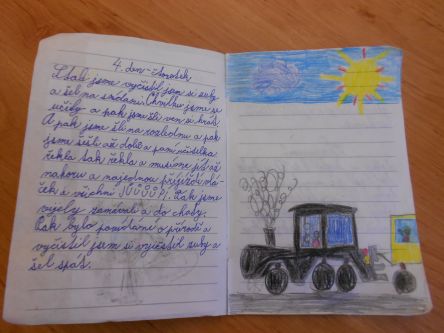 4. den - čtvrtek
Vstali jsme vyčistil jsem si zuby
a šel na snídani. Chvilku jsme se
učily a pak jsme šli ven si hrát.
A pak jsme šli na rozhlednu a pak
jsme sešli až dolů a paní učitelka
řekla tak řekla a musíme jít až
nahoru a najednou přijíždí vlá-
ček a všichni JŮŮŮŮ. Pak jsme
zamávali a do chaty.
Pak bylo povídání o přírodě a
vyčistil jsem si zuby a
šel spát.